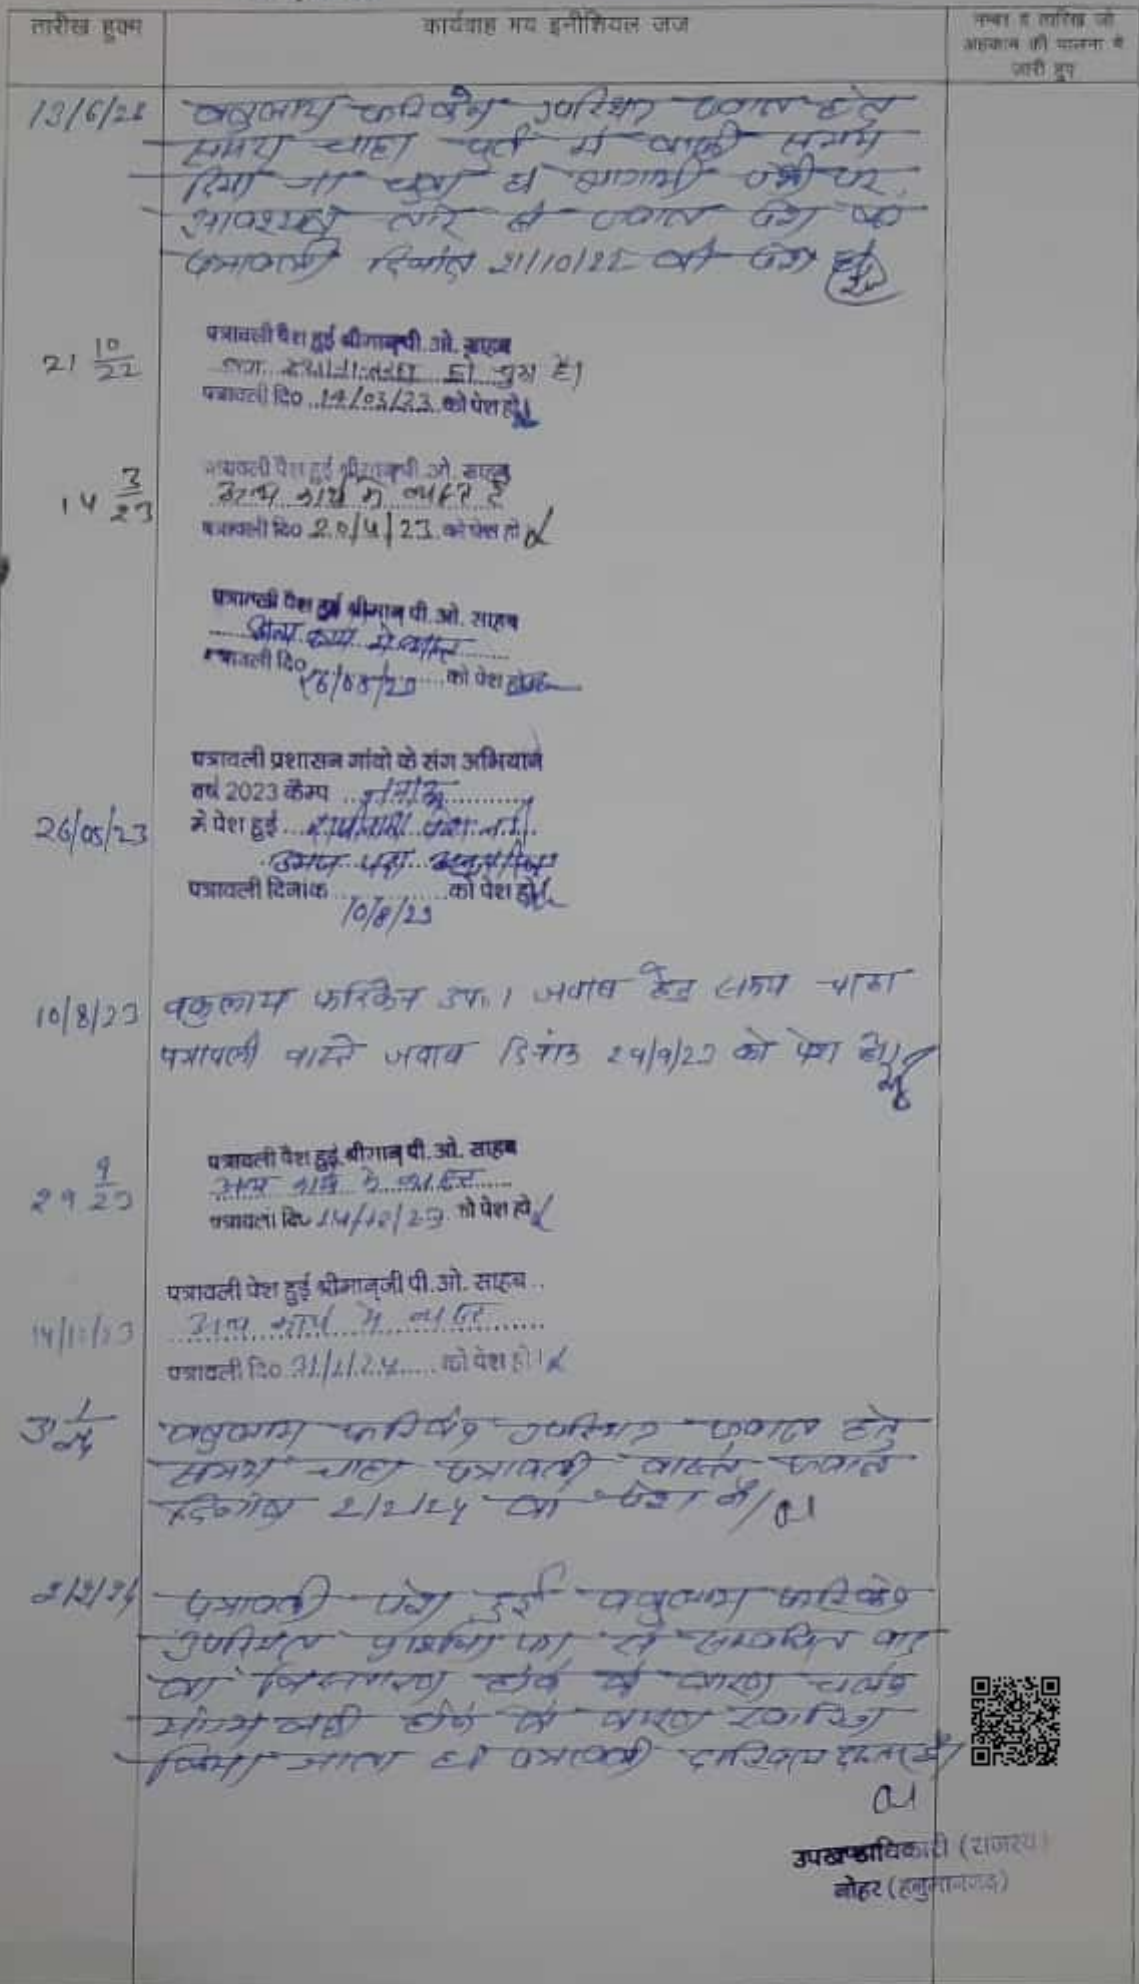 तारीख हुक्म
कार्यवाह मय इनीशियल जज
नम्बर व तारिख जो
अहकाम की पालना मे
जारी हुए
13/6/22
उपस्थित जवाब हेतु
समय चाहा पूर्व में काफी समय
दिया जा चुका है आगामी पेशी पर
आवश्यक तौर से जवाब पेश करे
पत्रावली दिनांक 21/10/22 को पेश हो
21 10/22
पत्रावली पेश हुई श्रीमान् पी. ओ. साहब
हो चुका है।
पत्रावली दि० 14/03/23 को पेश हो
14 3/23
पत्रावली पेश हुई श्रीमान् पी. ओ. साहब
अन्य कार्य मे व्यस्त है
पत्रावली दि० 20/4/23 को पेश हो
पत्रावली पेश हुई श्रीमान् पी. ओ. साहब
अन्य कार्य मे व्यस्त
पत्रावली दि० 26/05/23 को पेश हो
पत्रावली प्रशासन गांवो के संग अभियान
वर्ष 2023 कैम्प
26/05/23
मे पेश हुई
उभय पक्ष अनुपस्थित
पत्रावली दिनांक 10/8/23 को पेश हो
10/8/23
वकुलाय फरिकेन उप.। जवाब हेतु समय चाहा
पत्रावली वास्ते जवाब दिनांक 29/9/23 को पेश हो।
29 9/23
पत्रावली पेश हुई श्रीमान् पी. ओ. साहब
अन्य कार्य मे व्यस्त
पत्रावली दि० 14/12/23 को पेश हो
14/12/23
पत्रावली पेश हुई श्रीमान् जी पी. ओ. साहब
अन्य कार्य मे व्यस्त
पत्रावली दि० 31/1/24 को पेश हो।
31 1/24
वकुलाय फरिकेन उपस्थित जवाब हेतु
समय चाहा पत्रावली वास्ते जवाब
दिनांक 2/2/24 को पेश हो
2/2/24
पत्रावली पेश हुई वकुलाय फरिकेन
उपस्थित से सम्बन्धित वाद
का निस्तारण होने के कारण चलने
योग्य नही होने के कारण खारिज
किया जाता है। पत्रावली दाखिल दफ्तर हो
उपखण्डाधिकारी (राजस्व)
नोहर (हनुमानगढ़)